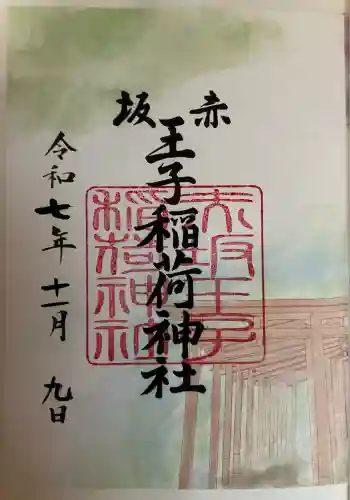 赤坂
王子稲荷神社
令和七年十一月九日
赤坂王子
稲荷神社